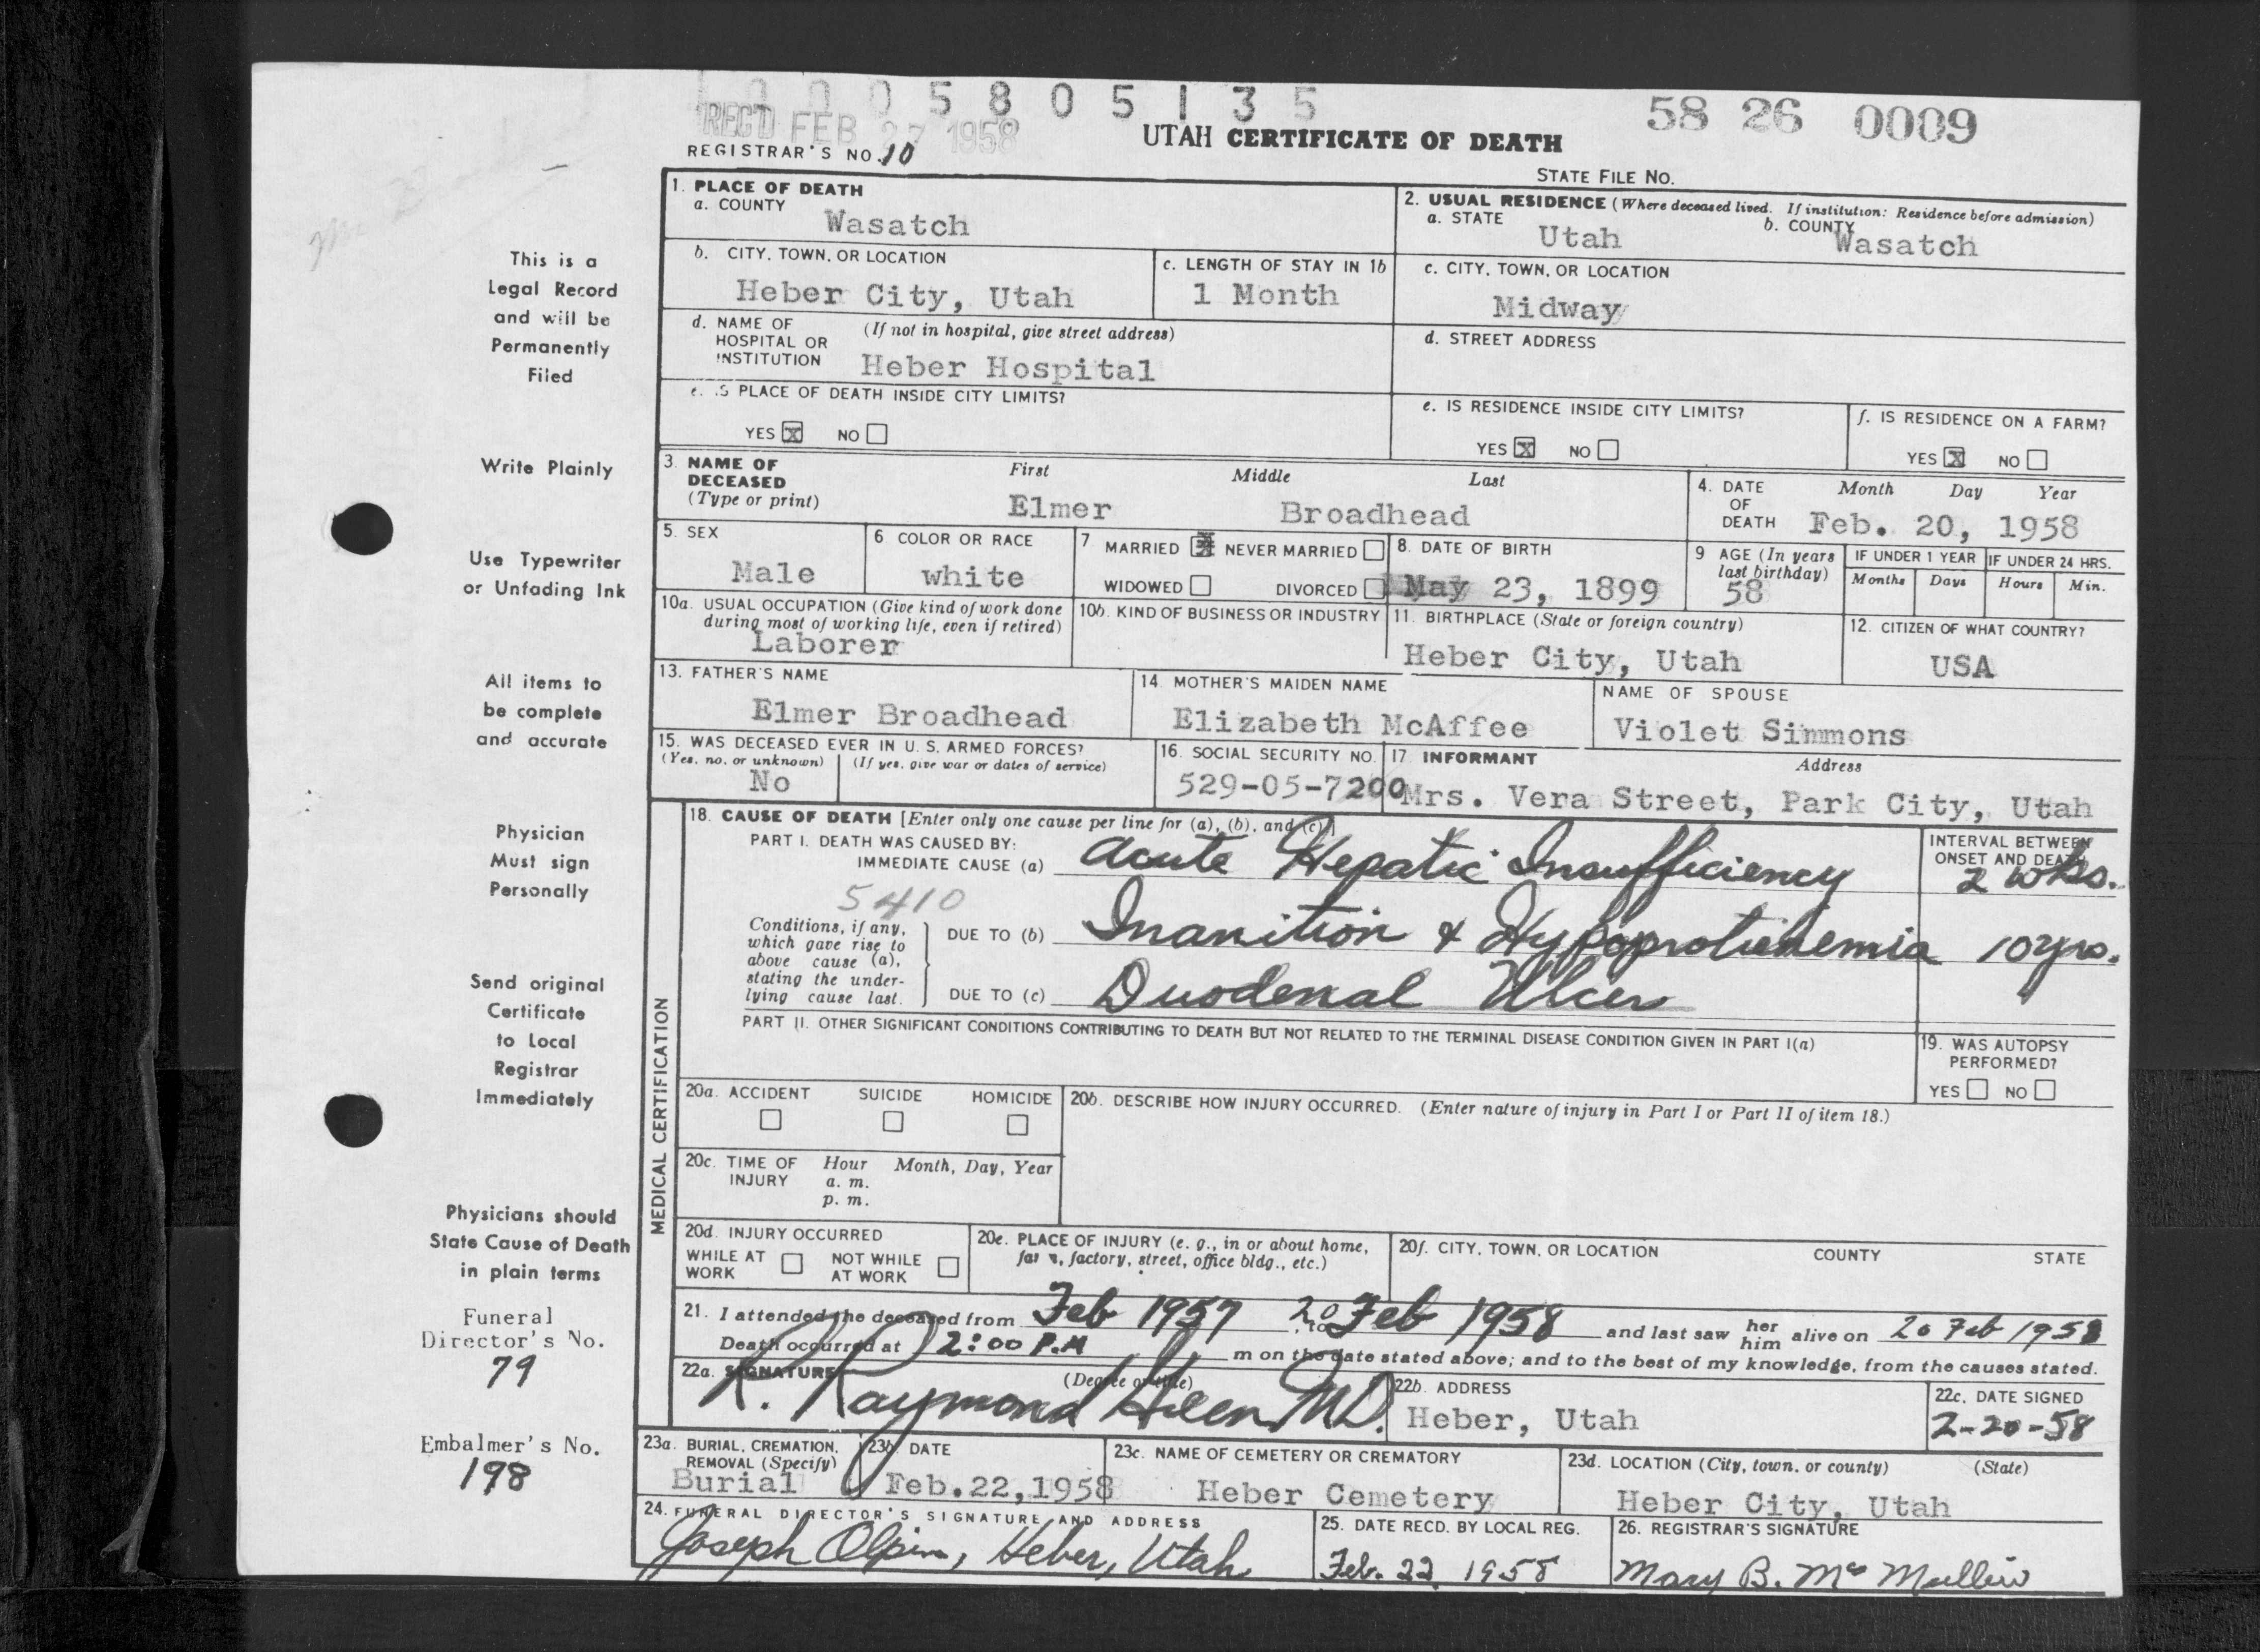 10005805135
58 26 0009
REC'D FEB 27 1958
UTAH CERTIFICATE OF DEATH
REGISTRAR'S NO. 10
STATE FILE NO.
This is a
Legal Record
and will be
Permanently
Filed
Write Plainly
Use Typewriter
or Unfading Ink
All items to
be complete
and accurate
Physician
Must sign
Personally
Send original
Certificate
to Local
Registrar
Immediately
Physicians should
State Cause of Death
in plain terms
Funeral
Director's No.
79
Embalmer's No.
198
1. PLACE OF DEATH
a. COUNTY
Wasatch
2. USUAL RESIDENCE (Where deceased lived. If institution: Residence before admission)
a. STATE
Utah
b. COUNTY
Wasatch
b. CITY, TOWN, OR LOCATION
Heber City, Utah
c. LENGTH OF STAY IN 1b
1 Month
c. CITY, TOWN, OR LOCATION
Midway
d. NAME OF HOSPITAL OR INSTITUTION
(If not in hospital, give street address)
Heber Hospital
d. STREET ADDRESS
e. IS PLACE OF DEATH INSIDE CITY LIMITS?
YES X NO
e. IS RESIDENCE INSIDE CITY LIMITS?
YES X NO
f. IS RESIDENCE ON A FARM?
YES X NO
3. NAME OF DECEASED (Type or print)
First Middle Last
Elmer Broadhead
4. DATE OF DEATH
Month Day Year
Feb. 20, 1958
5. SEX
Male
6 COLOR OR RACE
white
7 MARRIED X NEVER MARRIED
WIDOWED DIVORCED
8. DATE OF BIRTH
May 23, 1899
9 AGE (In years last birthday)
58
IF UNDER 1 YEAR
Months Days
IF UNDER 24 HRS.
Hours Min.
10a. USUAL OCCUPATION (Give kind of work done during most of working life, even if retired)
Laborer
10b. KIND OF BUSINESS OR INDUSTRY
11. BIRTHPLACE (State or foreign country)
Heber City, Utah
12. CITIZEN OF WHAT COUNTRY?
USA
13. FATHER'S NAME
Elmer Broadhead
14. MOTHER'S MAIDEN NAME
Elizabeth McAffee
NAME OF SPOUSE
Violet Simmons
15. WAS DECEASED EVER IN U. S. ARMED FORCES?
(Yes, no, or unknown) (If yes, give war or dates of service)
No
16. SOCIAL SECURITY NO.
529-05-7200
17 INFORMANT Address
Mrs. Vera Street, Park City, Utah
MEDICAL CERTIFICATION
18. CAUSE OF DEATH [Enter only one cause per line for (a), (b), and (c)]
PART I. DEATH WAS CAUSED BY:
IMMEDIATE CAUSE (a) Acute Hepatic Insufficiency
INTERVAL BETWEEN ONSET AND DEATH
2 wks.
5410
Conditions, if any, which gave rise to above cause (a), stating the underlying cause last.
DUE TO (b) Inanition & Hypoprotinemia 10 yrs.
DUE TO (c) Duodenal Ulcers
PART II. OTHER SIGNIFICANT CONDITIONS CONTRIBUTING TO DEATH BUT NOT RELATED TO THE TERMINAL DISEASE CONDITION GIVEN IN PART I(a)
19. WAS AUTOPSY PERFORMED?
YES NO
20a. ACCIDENT SUICIDE HOMICIDE
20b. DESCRIBE HOW INJURY OCCURRED. (Enter nature of injury in Part I or Part II of item 18.)
20c. TIME OF INJURY Hour Month, Day, Year
a. m.
p. m.
20d. INJURY OCCURRED
WHILE AT WORK NOT WHILE AT WORK
20e. PLACE OF INJURY (e. g., in or about home, farm, factory, street, office bldg., etc.)
20f. CITY, TOWN, OR LOCATION COUNTY STATE
21. I attended the deceased from Feb 1957, to 20 Feb 1958 and last saw her him alive on 20 Feb 1958
Death occurred at 2:00 P.M m on the date stated above; and to the best of my knowledge, from the causes stated.
22a. SIGNATURE (Degree or title)
R. Raymond Green M.D.
22b. ADDRESS
Heber, Utah
22c. DATE SIGNED
2-20-58
23a. BURIAL, CREMATION, REMOVAL (Specify)
Burial
23b. DATE
Feb.22,1958
23c. NAME OF CEMETERY OR CREMATORY
Heber Cemetery
23d. LOCATION (City, town, or county) (State)
Heber City, Utah
24. FUNERAL DIRECTOR'S SIGNATURE AND ADDRESS
Joseph Olpin, Heber, Utah
25. DATE RECD. BY LOCAL REG.
Feb. 22, 1958
26. REGISTRAR'S SIGNATURE
Mary B. McMullin